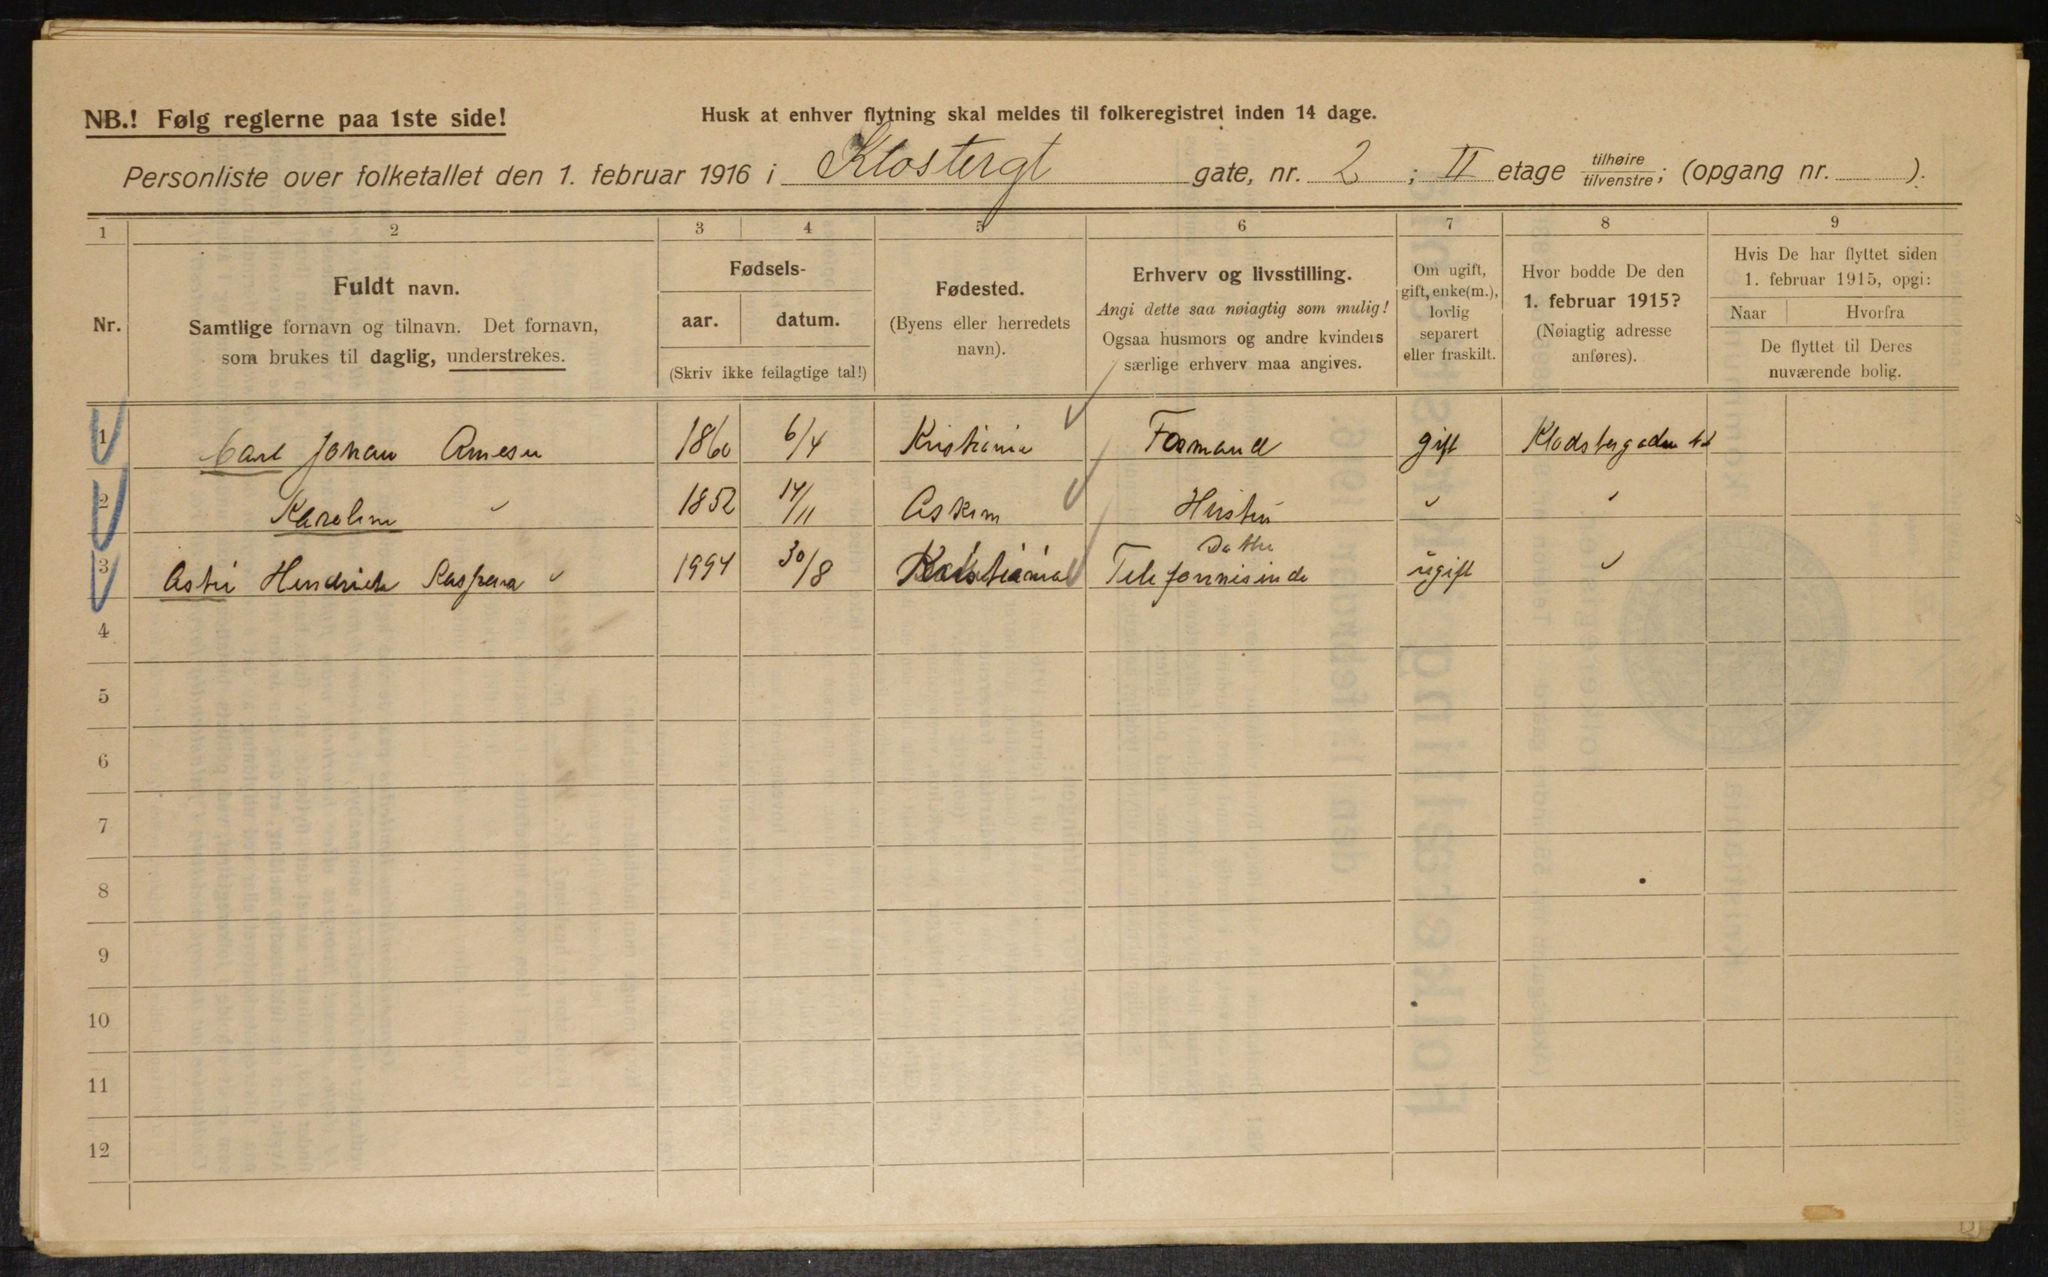 NB.! Følg reglerne paa 1ste side!
Husk at enhver flytning skal meldes til folkeregistret inden 14 dage.
Personliste over folketallet den 1. februar 1916 i Klostergt gate, nr. 2 ; II etage tilhøire tilvenstre; (opgang nr. ).
1 2 3 4 5 6 7 8 9
Nr.
Fuldt navn.
Samtlige fornavn og tilnavn. Det fornavn,
som brukes til daglig, understrekes.
Fødsels-
aar. datum.
(Skriv ikke feilagtige tal!)
Fødested.
(Byens eller herredets
navn).
Erhverv og livsstilling.
Angi dette saa nøiagtig som mulig!
Ogsaa husmors og andre kvinders
særlige erhverv maa angives.
Om ugift,
gift, enke(m.),
lovlig
separert
eller fraskilt.
Hvor bodde De den
1. februar 1915?
(Nøiagtig adresse
anføres).
Hvis De har flyttet siden
1. februar 1915, opgi:
Naar Hvorfra
De flyttet til Deres
nuværende bolig.
1 Carl Johan Arnesen 1860 6/4 Kristiania Formand gift
2 Karoline " 1852 14/11 Askim Hustru " "
Datter
3 Hendrich " 1994 30/8 Kristiania ugift "
4
5
6
7
8
9
10
11
12